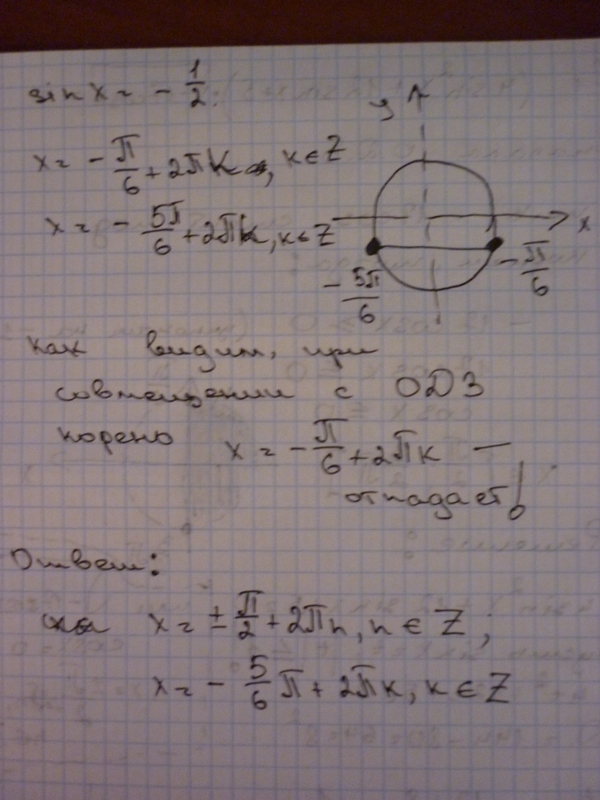 sin x = - 1/2;
x = - π/6 + 2πk, k ∈ Z
x = - 5π/6 + 2πk, k ∈ Z
y
x
- 5π/6
- π/6
как видим, при
совмещении с ОДЗ
корень x = - π/6 + 2πk —
отпадает!
Ответ:
x = ± π/2 + 2πn, n ∈ Z;
x = - 5/6 π + 2πk, k ∈ Z